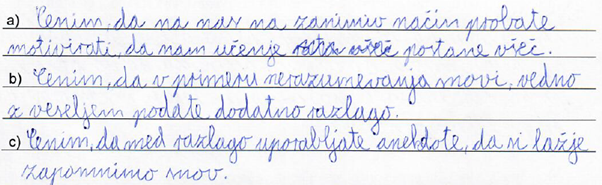 a) Cenim, da na nas na zanimiv način probate
motivirati, da nam učenje postane všeč.
b) Cenim, da v primeru nerazumevanja snovi, vedno
z veseljem podate dodatno razlago.
c) Cenim, da med razlago uporabljate anekdote, da si lažje
zapomnimo snov.